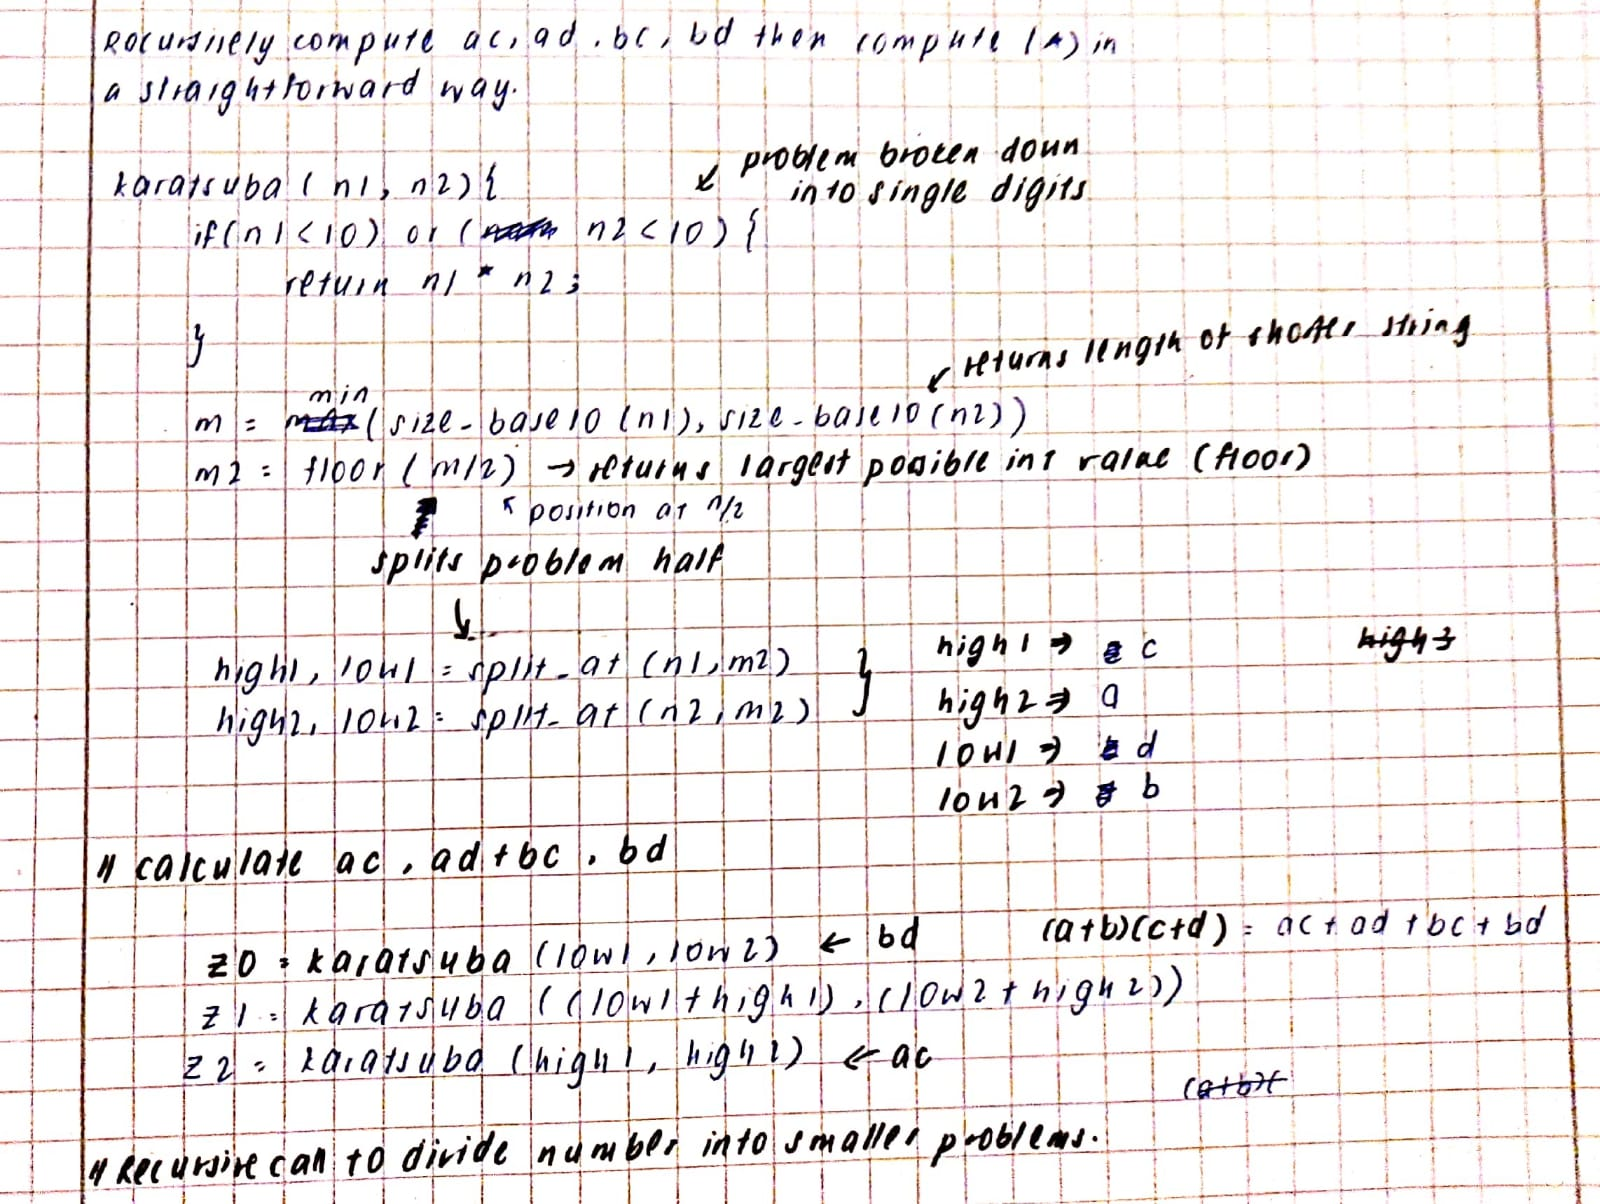 Recursively compute ac, ad, bc, bd then compute (*) in
a straightforward way.
problem broken down
into single digits
karatsuba (n1, n2){
if(n1<10) or (n2<10){
return n1 * n2;
}
returns length of shorter string
min
m = max(size_base10(n1), size_base10(n2))
m2 = floor(m/2) → returns largest possible int value (floor)
position at n/2
splits problem half
high1, low1 = split_at (n1, m2)
high2, low2 = split_at (n2, m2)
high1 ⇒ c
high3
high2 ⇒ a
low1 ⇒ d
low2 ⇒ b
// calculate ac, ad+bc, bd
z0 = karatsuba (low1, low2) ← bd
(a+b)(c+d) = ac + ad + bc + bd
z1 = karatsuba ((low1+high1), (low2+high2))
z2 = karatsuba (high1, high2) ← ac
(a+b)(
// Recursive call to divide number into smaller problems.